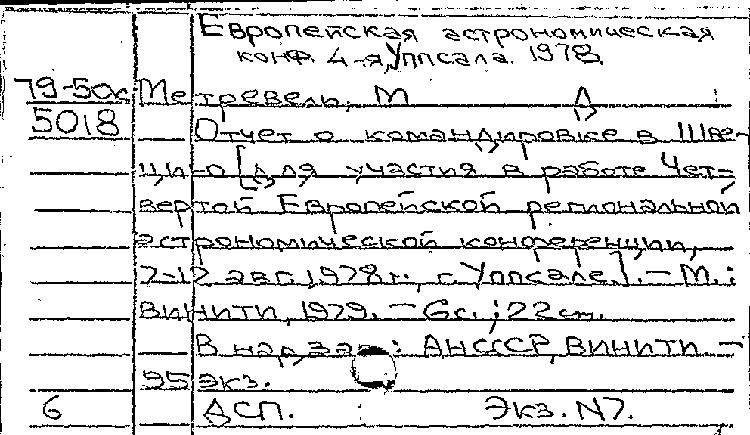 Европейская астрономическая
конф. 4-я, Уппсала. 1978.
79-50к Метревель, М Д
5018 Отчет о командировке в Шве-
ци-ю [для участия в работе Чет-
вертой Европейской региональной
астрономической конференции,
7-12 авг. 1978 г., г. Уппсале]. - М.:
ВИНИТИ, 1979. - 6с.; 22 cm.
В над заг: АНСССР, ВИНИТИ -
95 экз.
6 ДСП. Экз. N7.